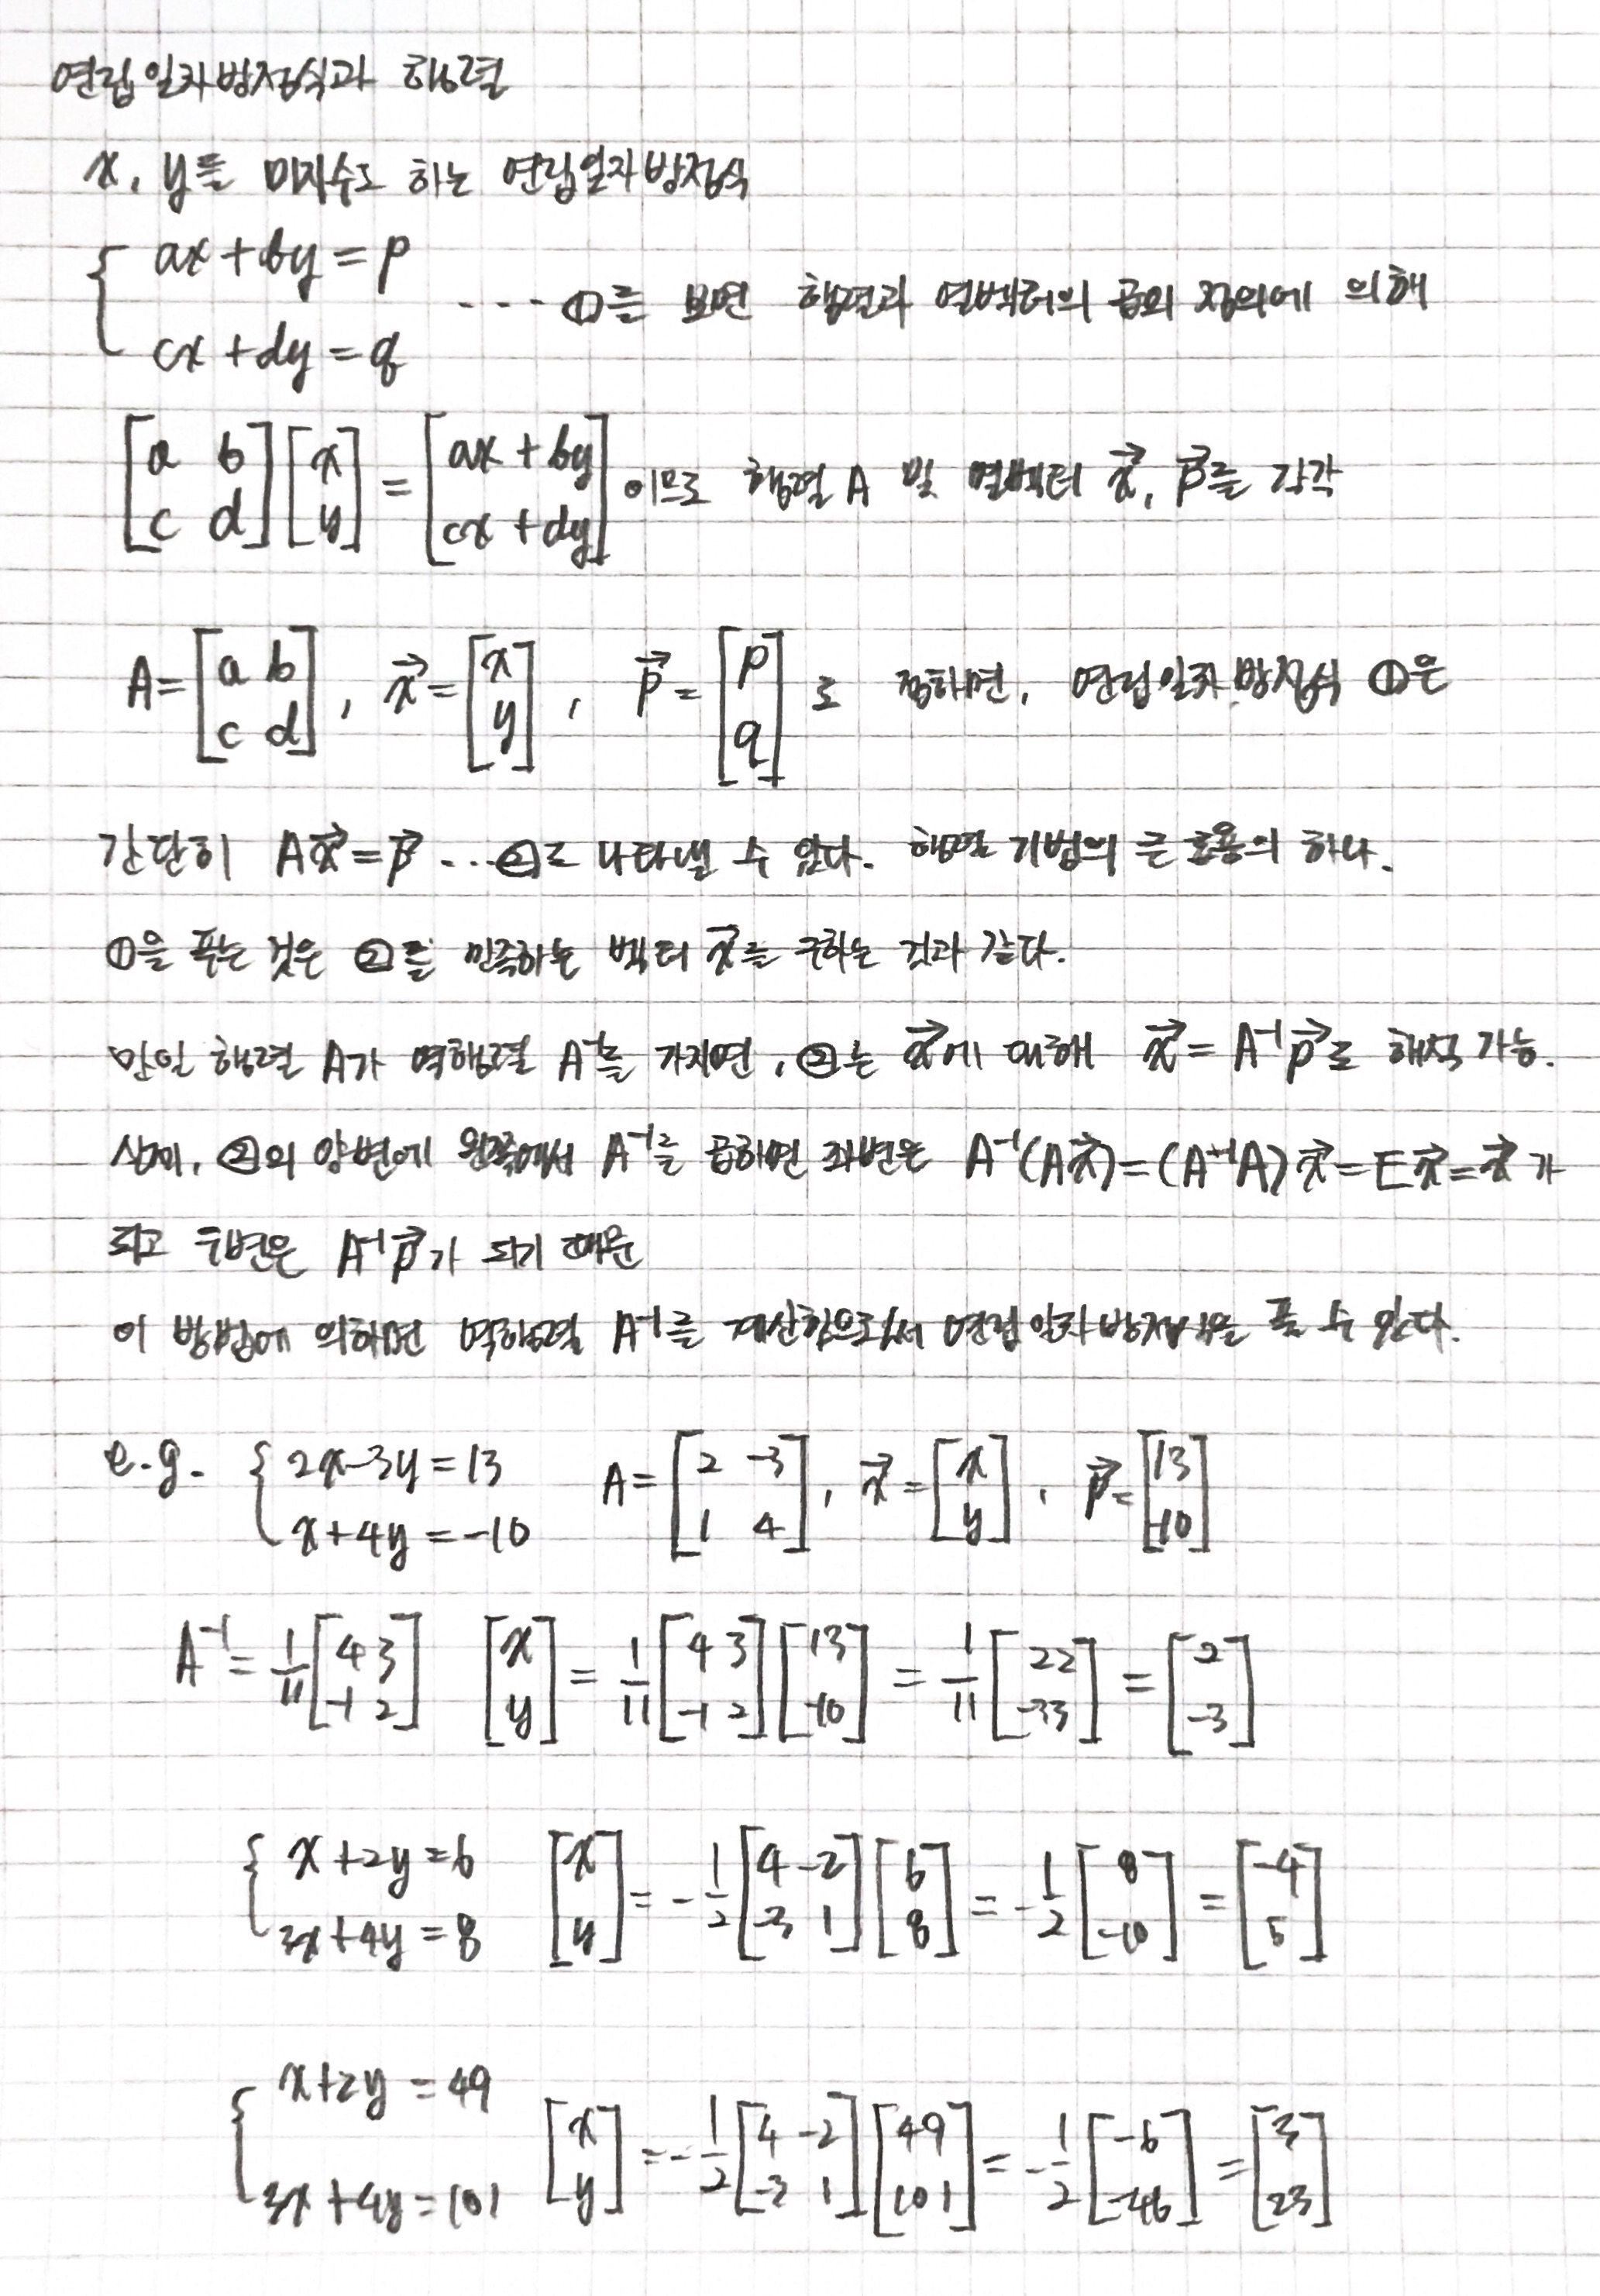 연립일차방정식과 행렬
x, y를 미지수로 하는 연립일차방정식
{ ax + by = p
cx + dy = q ···· ①를 보면 행렬과 열벡터의 곱의 정의에 의해
[a b; c d][x; y] = [ax + by; cx + dy] 이므로 행렬 A 및 열벡터 x⃗, p⃗를 각각
A = [a b; c d], x⃗ = [x; y], p⃗ = [p; q] 로 정하면, 연립일차방정식 ①은
간단히 Ax⃗ = p⃗ ···②로 나타낼 수 있다. 행렬 기법의 큰 효용의 하나.
①을 푸는 것은 ②를 만족하는 벡터 x⃗를 구하는 것과 같다.
만일 행렬 A가 역행렬 A⁻¹를 가지면, ②는 x⃗에 대해 x⃗ = A⁻¹p⃗로 해석 가능.
실제, ②의 양변에 왼쪽에서 A⁻¹를 곱하면 좌변은 A⁻¹(Ax⃗) = (A⁻¹A)x⃗ = Ex⃗ = x⃗ 가
되고 우변은 A⁻¹p⃗가 되기 때문
이 방법에 의하면 역행렬 A⁻¹를 계산함으로써 연립일차방정식을 풀 수 있다.
e.g. { 2x-3y = 13
x + 4y = -10 A = [2 -3; 1 4], x⃗ = [x; y], p⃗ = [13; -10]
A⁻¹ = 1/11 [4 3; -1 2] [x; y] = 1/11 [4 3; -1 2][13; -10] = 1/11 [22; -33] = [2; -3]
{ x + 2y = 6
3x + 4y = 8 [x; y] = -1/2 [4 -2; -3 1][6; 8] = -1/2 [8; -10] = [-4; 5]
{ x + 2y = 49
3x + 4y = 101 [x; y] = -1/2 [4 -2; -3 1][49; 101] = -1/2 [-6; -46] = [3; 23]